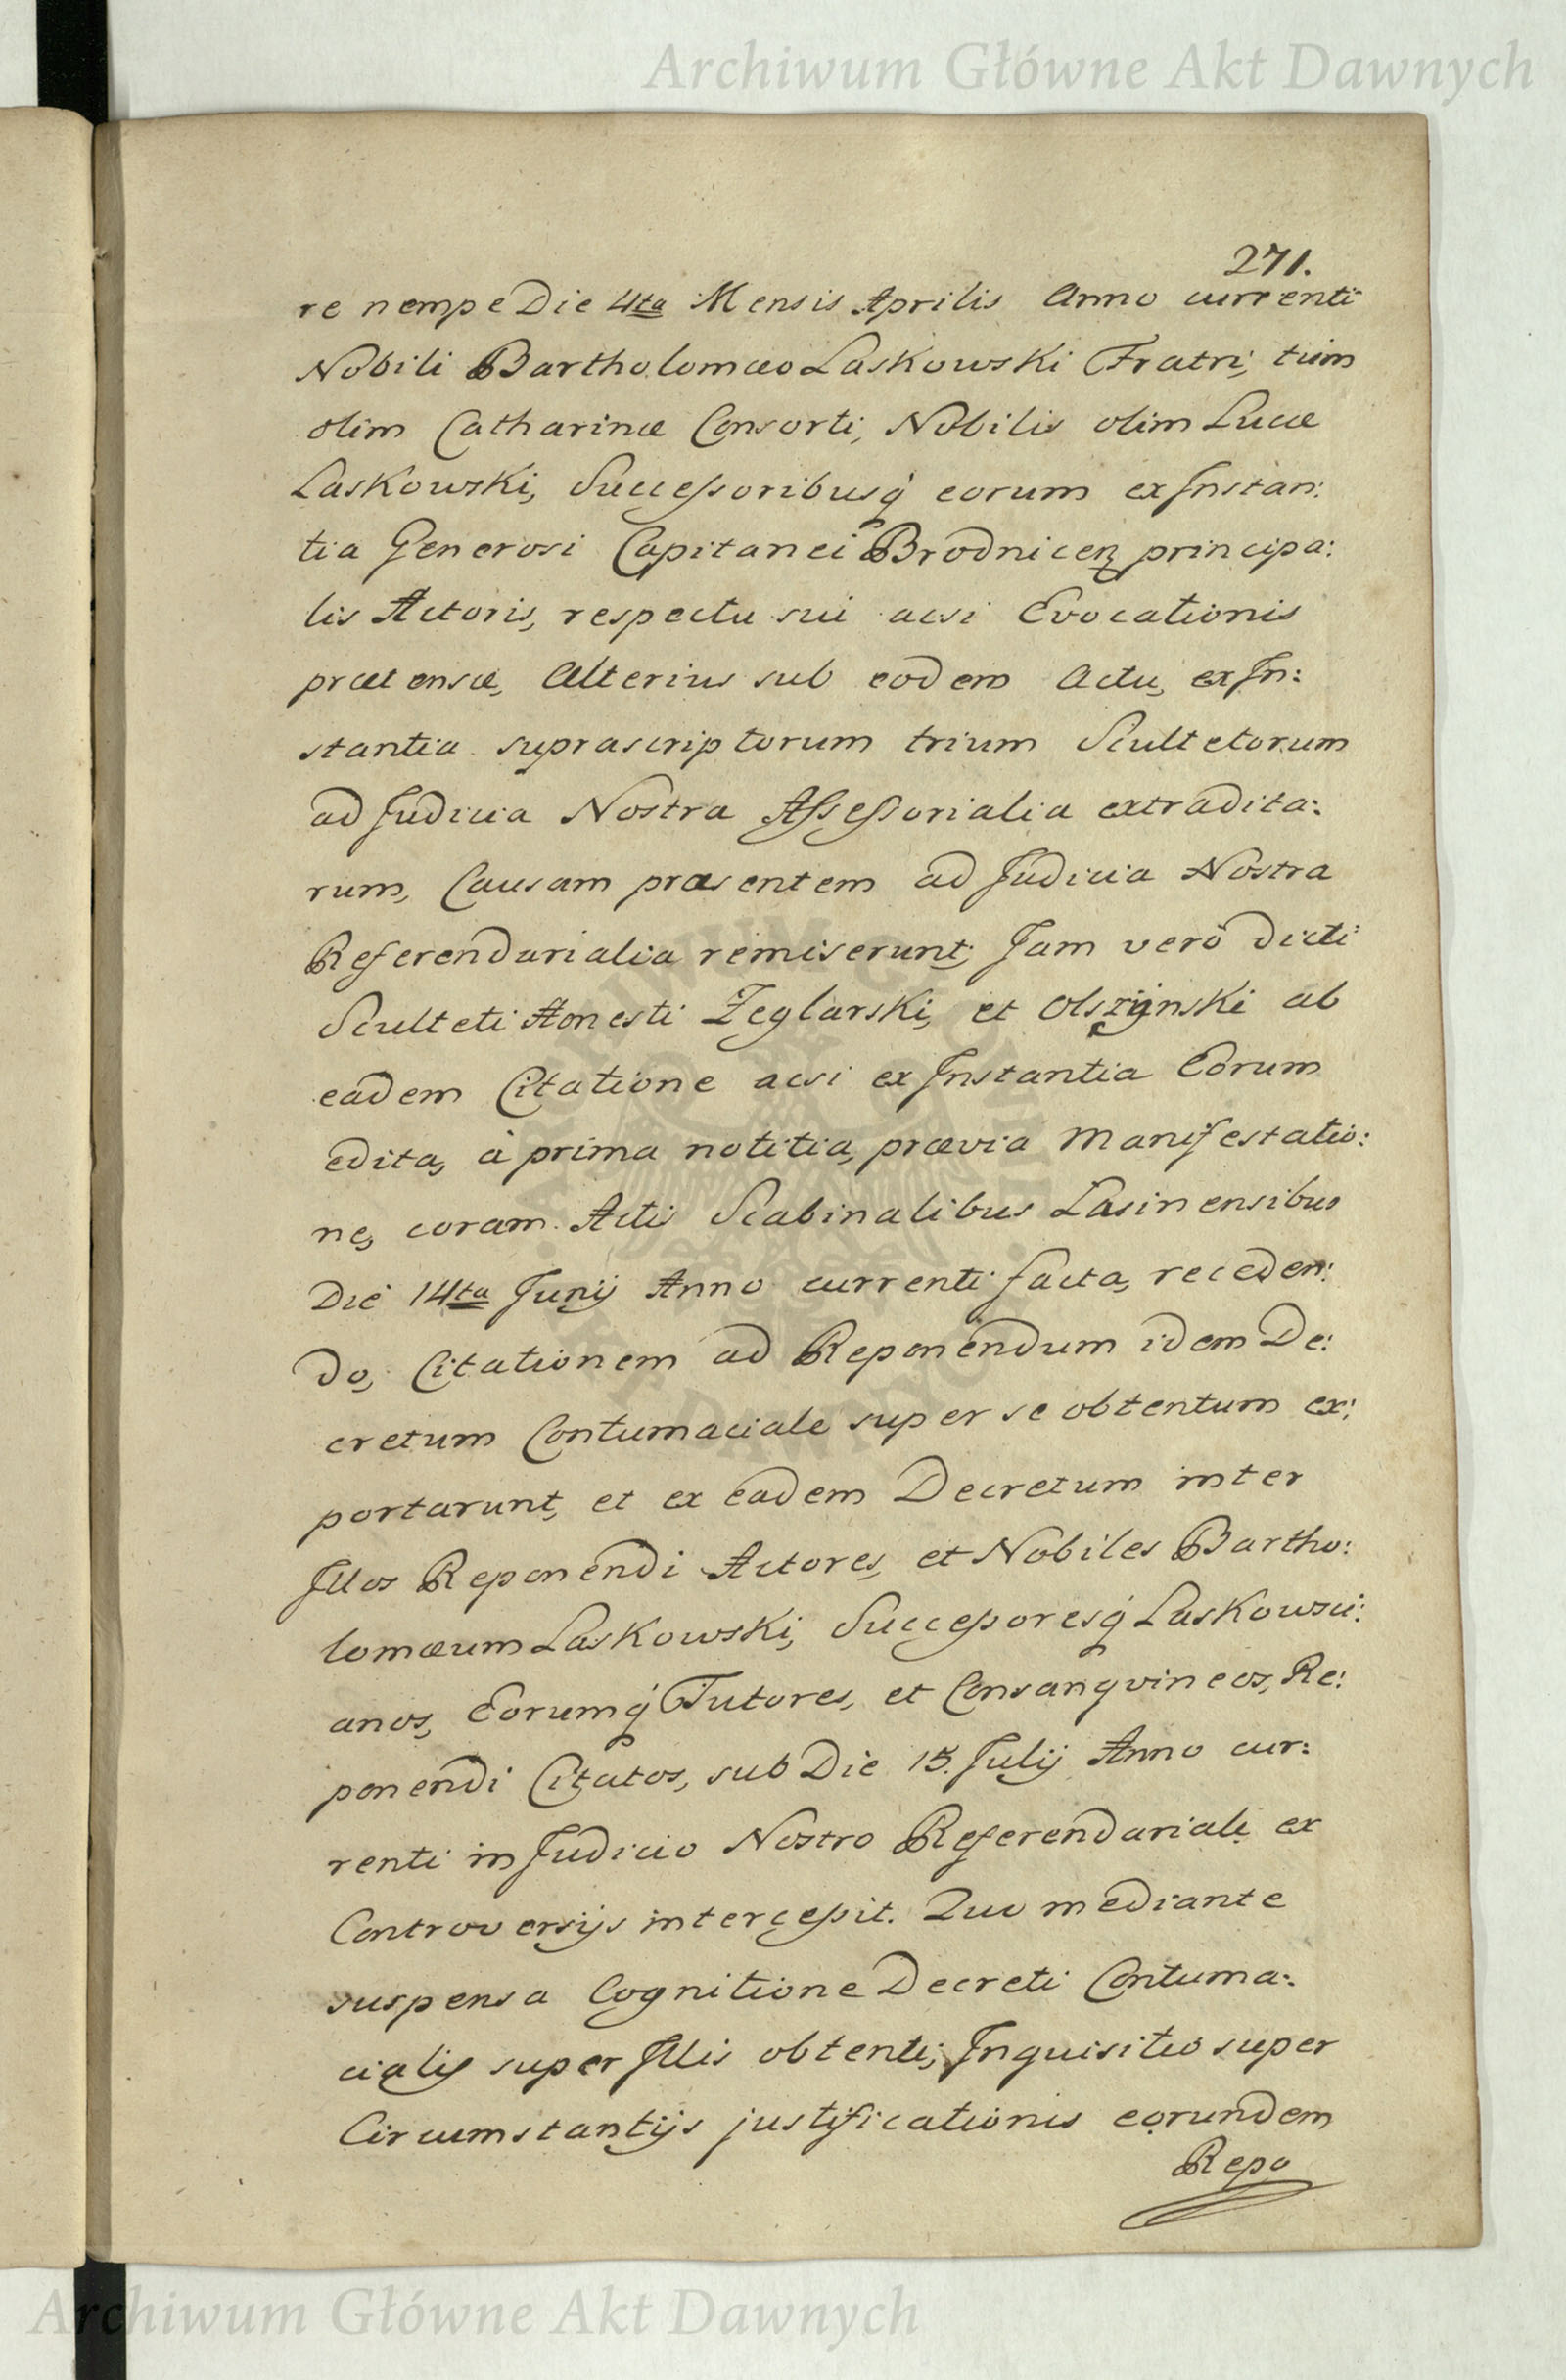 Archiwum Główne Akt Dawnych
271.
re nempe Die 4ta Mensis Aprilis Anno currenti
Nobili Bartholomæo Laskowski Fratri, tum
olim Catharinæ Consorti, Nobilis olim Lucæ
Laskowski, Successoribusq́ eorum ex Instan:
tia Generosi Capitanei Brodnicen principa:
lis Actoris, respectu sui acsi Evocationis
prætensæ, Alterius sub eodem Actu, ex In:
stantia suprascriptorum trium Scultetorum
ad Judicia Nostra Assessorialia extradita:
rum, Causam præsentem ad Judicia Nostra
Referendarialia remiserunt; Jam verò dicti
Sculteti Honesti Zeglarski, et Olszÿnski ab
eadem Citatione acsi ex Instantia Eorum
edita, à prima notitia, prævia Manifestatio:
ne, coram Actis Scabinalibus Lasinensibus
Die 14ta Junij Anno currenti facta, receden:
do, Citationem ad Reponendum idem De:
cretum Contumaciale super se obtentum ex:
portarunt, et ex eadem Decretum inter
Illos Reponendi Actores, et Nobiles Bartho:
lomæum Laskowski, Successoresq́ Laskowsci:
anos, Eorumq́ Tutores, et Consangvineos, Re:
ponendi Citatos, sub Die 15. Julij Anno cur:
renti in Judicio Nostro Referendariali ex
Controversijs intercessit. Quo mediante
suspensa Cognitione Decreti Contuma:
cialis super Illis obtenti; Inquisitio super
Circumstantijs justificationis eorundem
Repo
Archiwum Główne Akt Dawnych